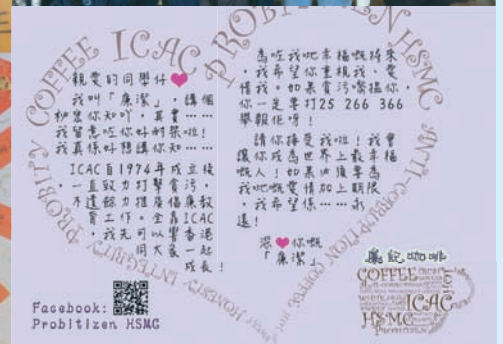 COFFEE ICAC PROBITIZEN HSMC ANTI-CORRUPTION COFFEE
PROBITY INTEGRITY HONESTY
親愛的同學仔❤
我叫「廉潔」，講個
秘密你知吖，其實……
我留意咗你好耐架啦！
我真係好想講你知……
ICAC自1974年成立後
，一直致力打擊貪污，
不遺餘力推廣倡廉教
育工作。全靠ICAC
，我先可以響香港
同大家一起
成長！
為咗我哋幸福嘅將來
，我希望你重視我、愛
惜我。如果貪污嚟搵你，
你一定要打25 266 366
舉報佢呀！
請你接受我啦！我會
讓你成為世界上最幸福
嘅人！如果必須要為
我哋嘅愛情加上期限
，我希望係……永
遠！
深❤你嘅
「廉潔」
Facebook:
Probitizen HSMC
廉記咖啡
COFFEE
ICAC
HSMC
PROBITIZEN